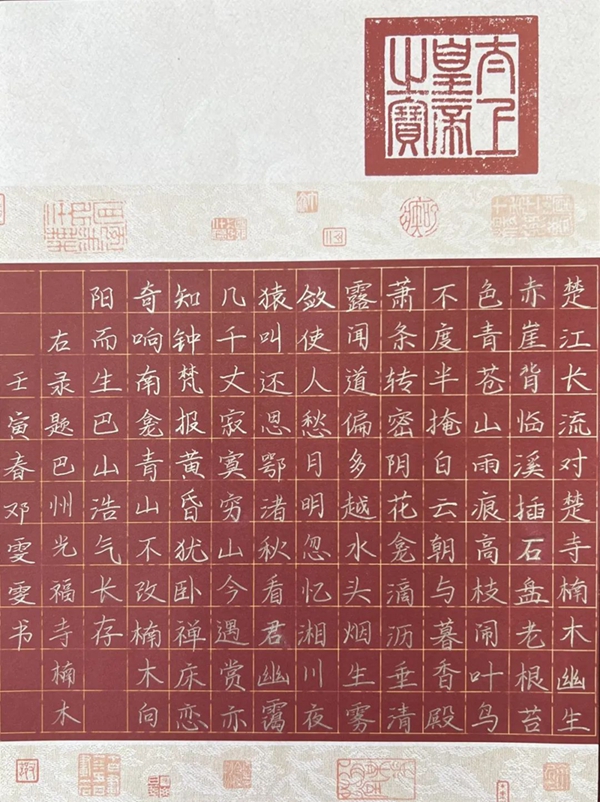 太上
皇帝
之寶
楚江长流对楚寺楠木幽生
赤崖背临溪插石盘老根苔
色青苍山雨痕高枝闹叶鸟
不度半掩白云朝与暮香殿
萧条转密阴花龛滴沥垂清
露闻道偏多越水头烟生雾
敛使人愁月明忽忆湘川夜
猿叫还思鄂渚秋看君幽霭
几千丈寂寞穷山今遇赏亦
知钟梵报黄昏犹卧禅床恋
奇响南龛青山不改楠木向
阳而生巴山浩气长存
右录题巴州光福寺楠木
壬寅春邓雯雯书